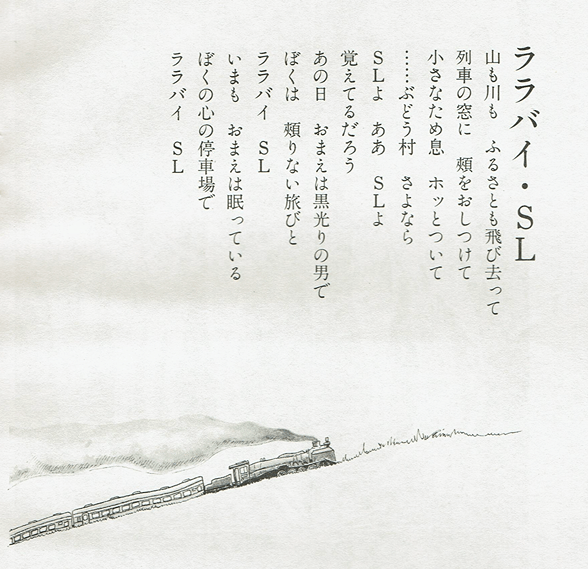 ララバイ・SL
山も川も　ふるさとも飛び去って
列車の窓に　頰をおしつけて
小さなため息　ホッとついて
……ぶどう村　さよなら
SLよ　ああ　SLよ
覚えてるだろう
あの日　おまえは黒光りの男で
ぼくは　頰りない旅びと
ララバイ　SL
いまも　おまえは眠っている
ぼくの心の停車場で
ララバイ　SL